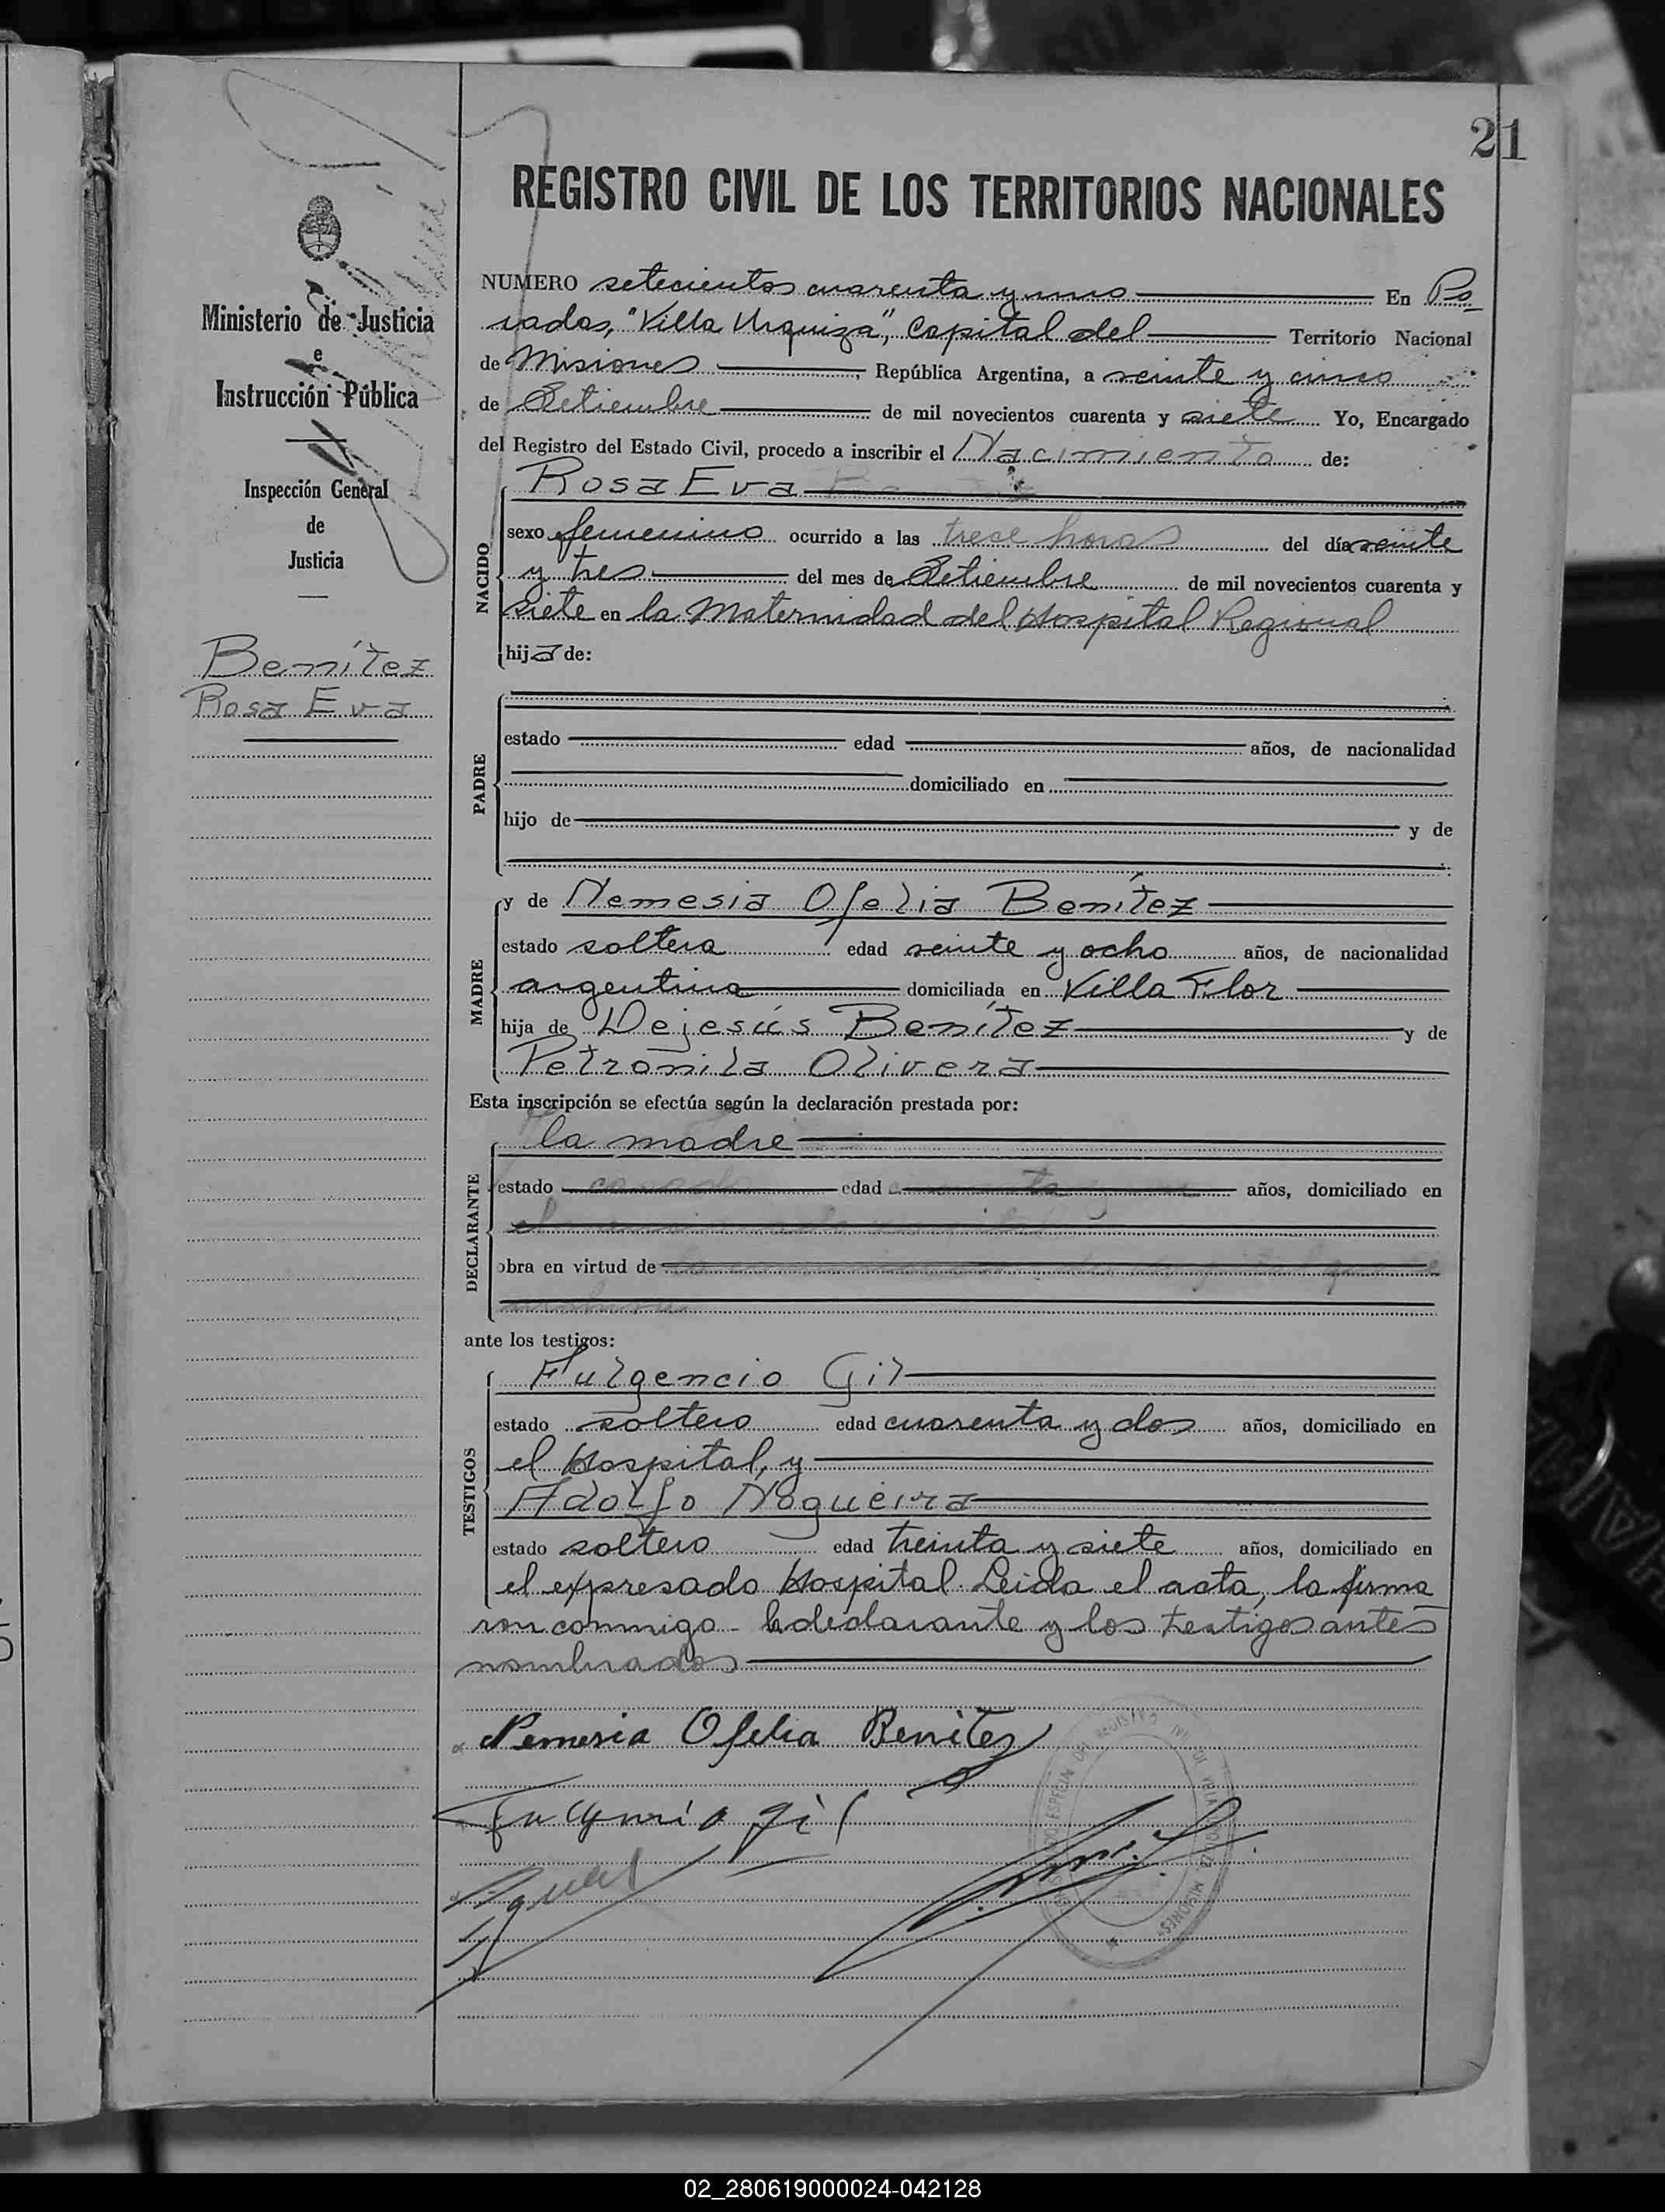 21
REGISTRO CIVIL DE LOS TERRITORIOS NACIONALES
Ministerio de Justicia
e
Instrucción Pública
Inspección General
de
Justicia
Benítez
Rosa Eva
NUMERO setecientos cuarenta y uno En Po
sadas, "Villa Urquiza", Capital del Territorio Nacional
de Misiones, República Argentina, a veinte y cinco
de Setiembre de mil novecientos cuarenta y siete. Yo, Encargado
del Registro del Estado Civil, procedo a inscribir el Nacimiento de:
Rosa Eva
NACIDO
sexo femenino ocurrido a las trece horas del día veinte
y tres del mes de Setiembre de mil novecientos cuarenta y
siete en la Maternidad del Hospital Regional
hija de:
PADRE
estado edad años, de nacionalidad
domiciliado en
hijo de y de
MADRE
y de Nemesia Ofelia Benítez
estado soltera edad veinte y ocho años, de nacionalidad
argentina domiciliada en Villa Flor
hija de Dejesús Benítez y de
Petronila Olivera
Esta inscripción se efectúa según la declaración prestada por:
DECLARANTE
la madre
estado edad años, domiciliado en
obra en virtud de
ante los testigos:
TESTIGOS
Fulgencio Gil
estado soltero edad cuarenta y dos años, domiciliado en
el Hospital, y
Adolfo Nogueira
estado soltero edad treinta y siete años, domiciliado en
el expresado Hospital. Leida el acta, la firma
ron conmigo la declarante y los testigos antes
nombrados
Nemesia Ofelia Benitez
Fulgencio Gil
MISIONES
02_280619000024-042128